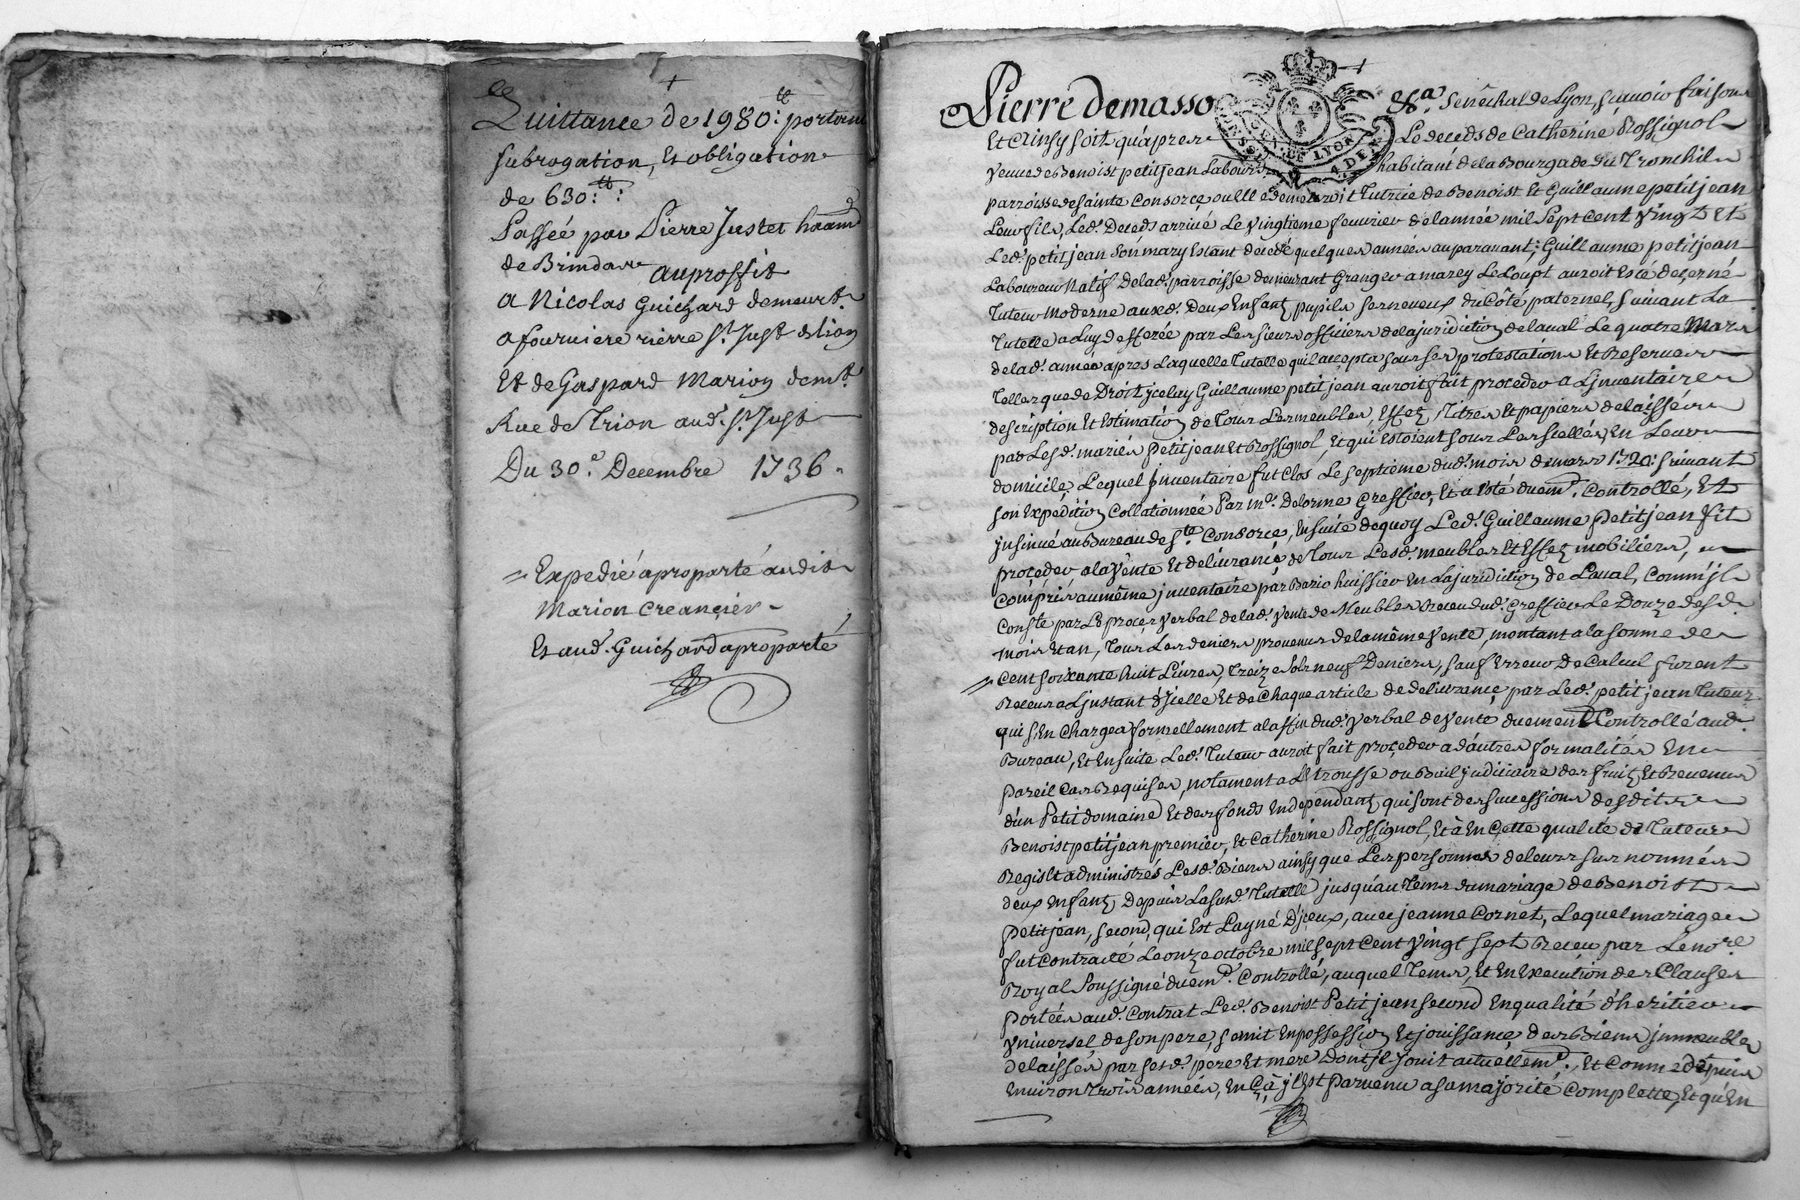 Quittance de 1980.tt portant
subrogation, Et obligation
de 630.tt:
Passée par Pierre Justet
de Brindas auproffit
a Nicolas Guichard demeurt
a fourviere rierre St. Just de lion
Et de Gaspard Marion demt.
Rue de Trion aud. St. Just
Du 30.e Decembre 1736.
Expedié aproparté audit
Marion Creancier
Et aud. Guichard aproparté
Pierre Demasso &a. Senêchal de Lyon, sçavoir faisons
Et Ainsy soit qu'apres Le deceds de Catherine Rossignol
Veuve de Benoist petitjean Laboureur habitant de la Bourgade du Tronchil
parroisse de sainte Consorce, ou elle Tutrice de Benoist Et Guillaume petitjean
Leurs fils, Led. Deceds arrivé Le vingtieme feuvrier de lannée mil sept cent vingt Et
Led. petitjean son mary Estant decedé quelques années auparavant; Guillaume petitjean
Laboureur Natif de lad. parroisse demeurant Granger a marcy Le Loupt auroit Esté deçerné
Tuteur moderne auxd. deux Enfanz pupils ses neveux du Côté paternel, suivant La
Tutelle a Luy defferée par Les sieurs officiers de la juridiction de laval Le quatre Mars
de lad. année apres Laquelle Tutelle quil accepta sous ses protestations Et Reserves
Telles que de Droit, yceluy Guillaume petitjean auroit fait proceder a Ljnventaire
description Et Estimation de Tous Les meubles, Effez, Titres Et papiers delaissés
par Lesd. mariés petitjean Et Rossignol, Et qui Estoient sous Les scellés, En Leur
domicile, Lequel jnventaire fut Clos Le septieme dud. mois de mars 1720: suivant
son Expedition Collationnée Par Me. Delorme Greffier, Et a Esté duem.t Controllé, Et
jnsinué au Bureau de Ste. Consorce, Ensuite de quoy Led. Guillaume Petitjean fit
proçeder a la vente Et delivrance de Tous Lesd. meubles Et Effez mobiliers,
Compris au même jnventaire par Bario huissier En La juridiction de Laval, Comm'jl
Conste par Le proçes verbal de lad. vente de Meubles Receu dud. Greffier Le Douze desd.
mois Et an, Tous Les deniers provenus de la même vente, montant a la somme de
Cent soixante huit Livres, Treize sols neuf Deniers, sauf Erreur de Calcul furent
Receus a Ljnstant d'jcelle Et de Chaque article de delivrance par Led. petitjean Tuteur
qui s'En Chargea formellement a la fin dud. verbal de vente duement Controllé aud.
Bureau, Et Ensuite Led. Tuteur auroit fait proçeder a d'autres formalités En
pareil Cas Requises, notament a Letrousse ou Bail judiciaire des fruiz Et Revenus
d'un Petit domaine Et des fonds Endependanz, qui sont des successions desdits
Benoist petitjean premier, Et Catherine Rossignol, Et à En Cette qualité de Tuteur
Regis Et administrés Lesd. Biens ainsy que Les personnes de leurs sus nommés
deux enfanz, Depuis Lasud. Tutelle jusqu'au Tems du mariage de Benoist
Petitjean, second, qui Est Layné D'jceux, avec jeanne Cornet, Lequel mariage
fut Contracté Le onze octobre mil sept Cent Vingt sept Receu par Le no.re
Royal soussigné duem.t Controllé, auquel Tems, Et En Execution des Clauses
Portées aud. Contrat Led. Benoist Petitjean second En qualité d'heritier
Vniversel de son pere, se mit En possession Et jouissance des Biens jmmeubles
delaissés par sesd. pere Et mere dont jl jouit actuellem.t, Et Comme depuis
Environ Trois années, En Çà, jl Est parvenu a sa majorité Complette, Et qu'En